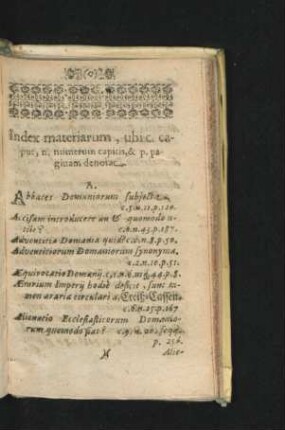 Index materiarum, ubi c. ca-
put, n. numerum capitis, & p. pa-
ginam denotat.
A.
Abbates Domaniorum subjecti
c. 5. n. 11. p. 110.
Accisam introducere an & quomodo li-
c. 6. n. 43. p. 157.
Adventitia Domania quid? c. 2. n. 8. p. 50.
Adventitiorum Domaniorum synonyma.
c. 2. n. 10. p. 51.
Æquivocatio Domanij. c. 1. n. 44. p. 8.
Ærarium Imperij hodiè deficit, sunt ta-
men æraria circularia, Creiß-Cassen.
c. 6. n. 25. p. 167
Alienatio Ecclesiasticorum Domanio-
rum quomodo fiat? c. 9. n.
p. 256.
Alie-